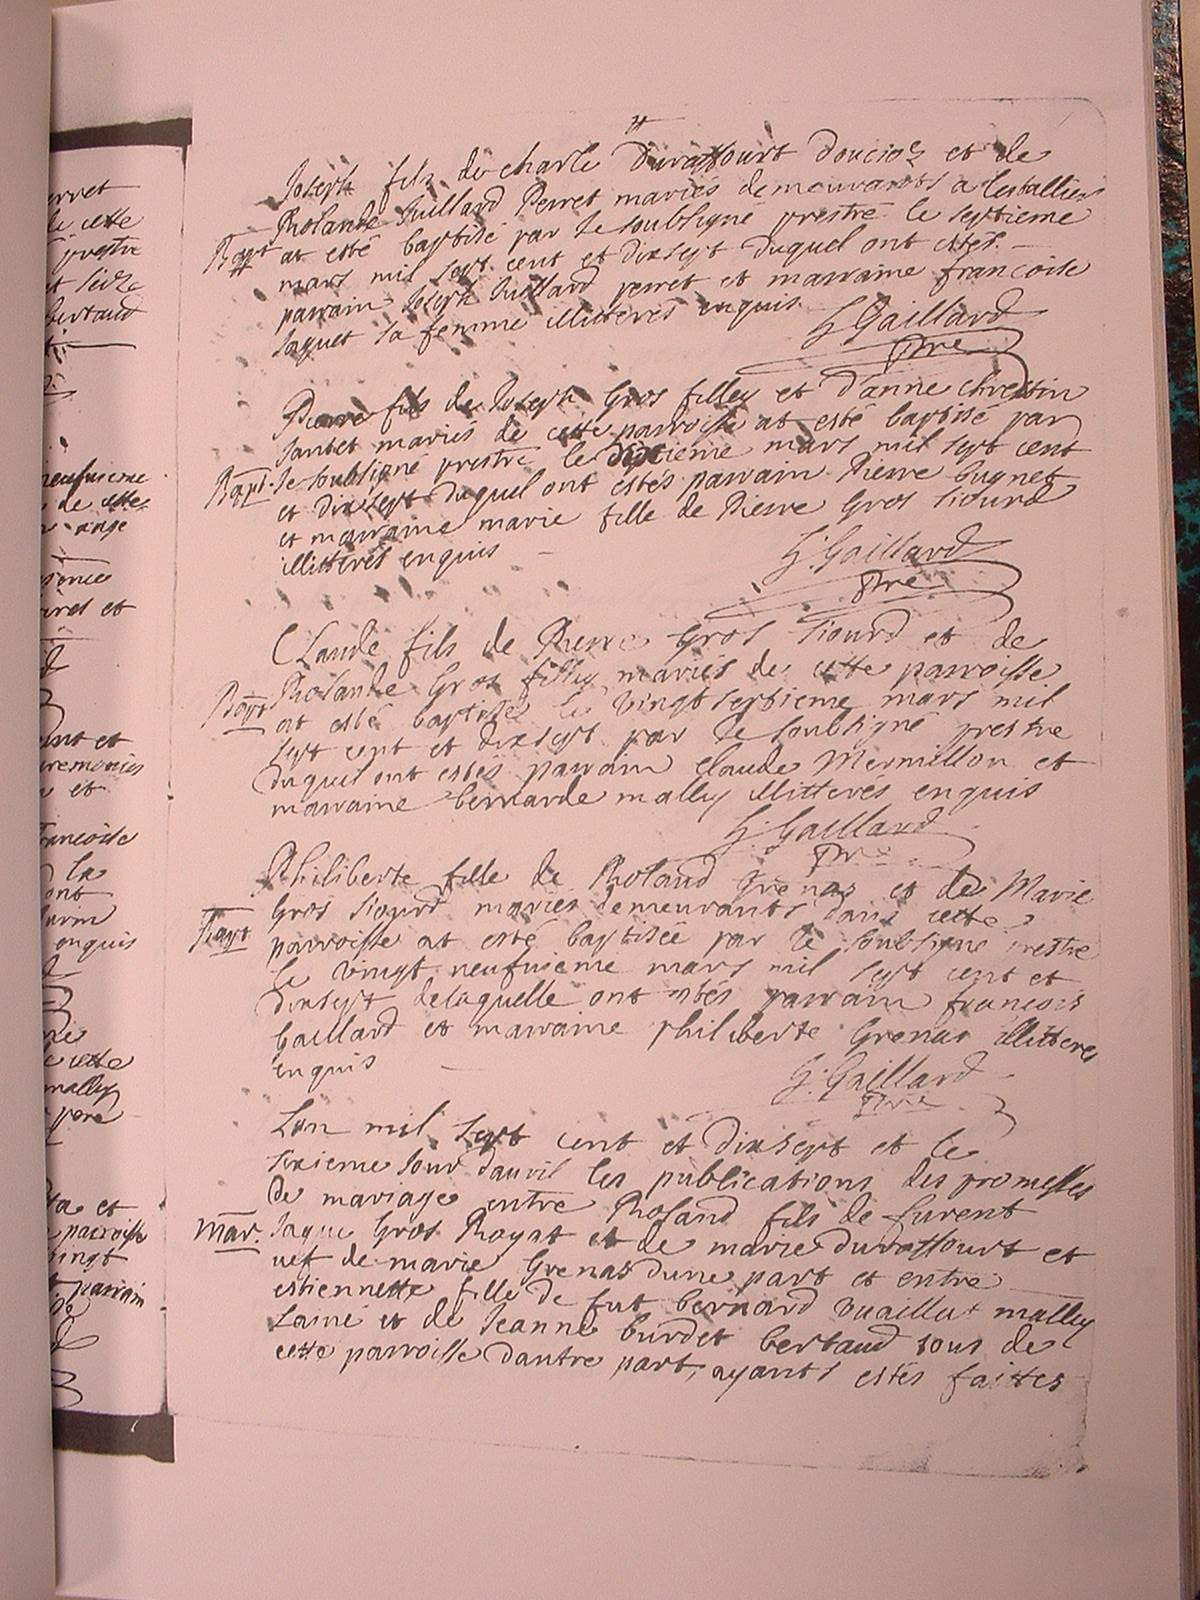 Joseph fils de charle Duraffourt doucier et de
Rolande Juillard Perret mariés demeurants a lestallier
Bapt at esté baptisé par le soubsigné prestre le septieme
mars mil sept cent et dixsept duquel ont estés
parrain Joseph Juillard perret et marraine francoise
Jaquet sa femme illitterés enquis
G: Gaillard
Ptre
Pierre fils de Joseph Gros filley et d'anne chrestin
Jantet mariés de cette parroisse at esté baptisé par
Bapt. le soubsigné prestre le dixieme mars mil sept cent
et dixsept duquel ont estés parrain Pierre bugnet
et marraine marie fille de Pierre Gros Siourd
illitterés enquis
G: Gaillard
Ptre
Claude fils de Pierre Gros Siourd et de
Bapt Rolande Gros filley mariés de cette parroisse
at esté baptisé le vingt septieme mars mil
sept cent et dixsept par le soubsigné prestre
duquel ont estés parrain Claude Mermillon et
marraine bernarde mally illitterés enquis
G: Gaillard
Ptre
Philiberte fille de Roland Grenas et de Marie
Gros Siourd mariés demeurants dans cette
Bapt parroisse at esté baptisée par le soubsigné prestre
le vingt neufuieme mars mil sept cent et
dixsept delaquelle ont estés parrain francois
Gaillard et marraine philiberte Grenas illitteres
enquis
G: Gaillard
Ptre
Lan mil sept cent et dixsept et le
sixieme Jour dauril les publications des promesses
de mariage entre Roland fils de furent
mar. Jaque Gros Royat et de marie duraffourt et
uef de marie Grenas dune part et entre
estiennette fille de fut bernard vuaillat mally
Lainé et de Jeanne burdet bertaud tous de
cette parroisse dautre part, ayants estés faittes